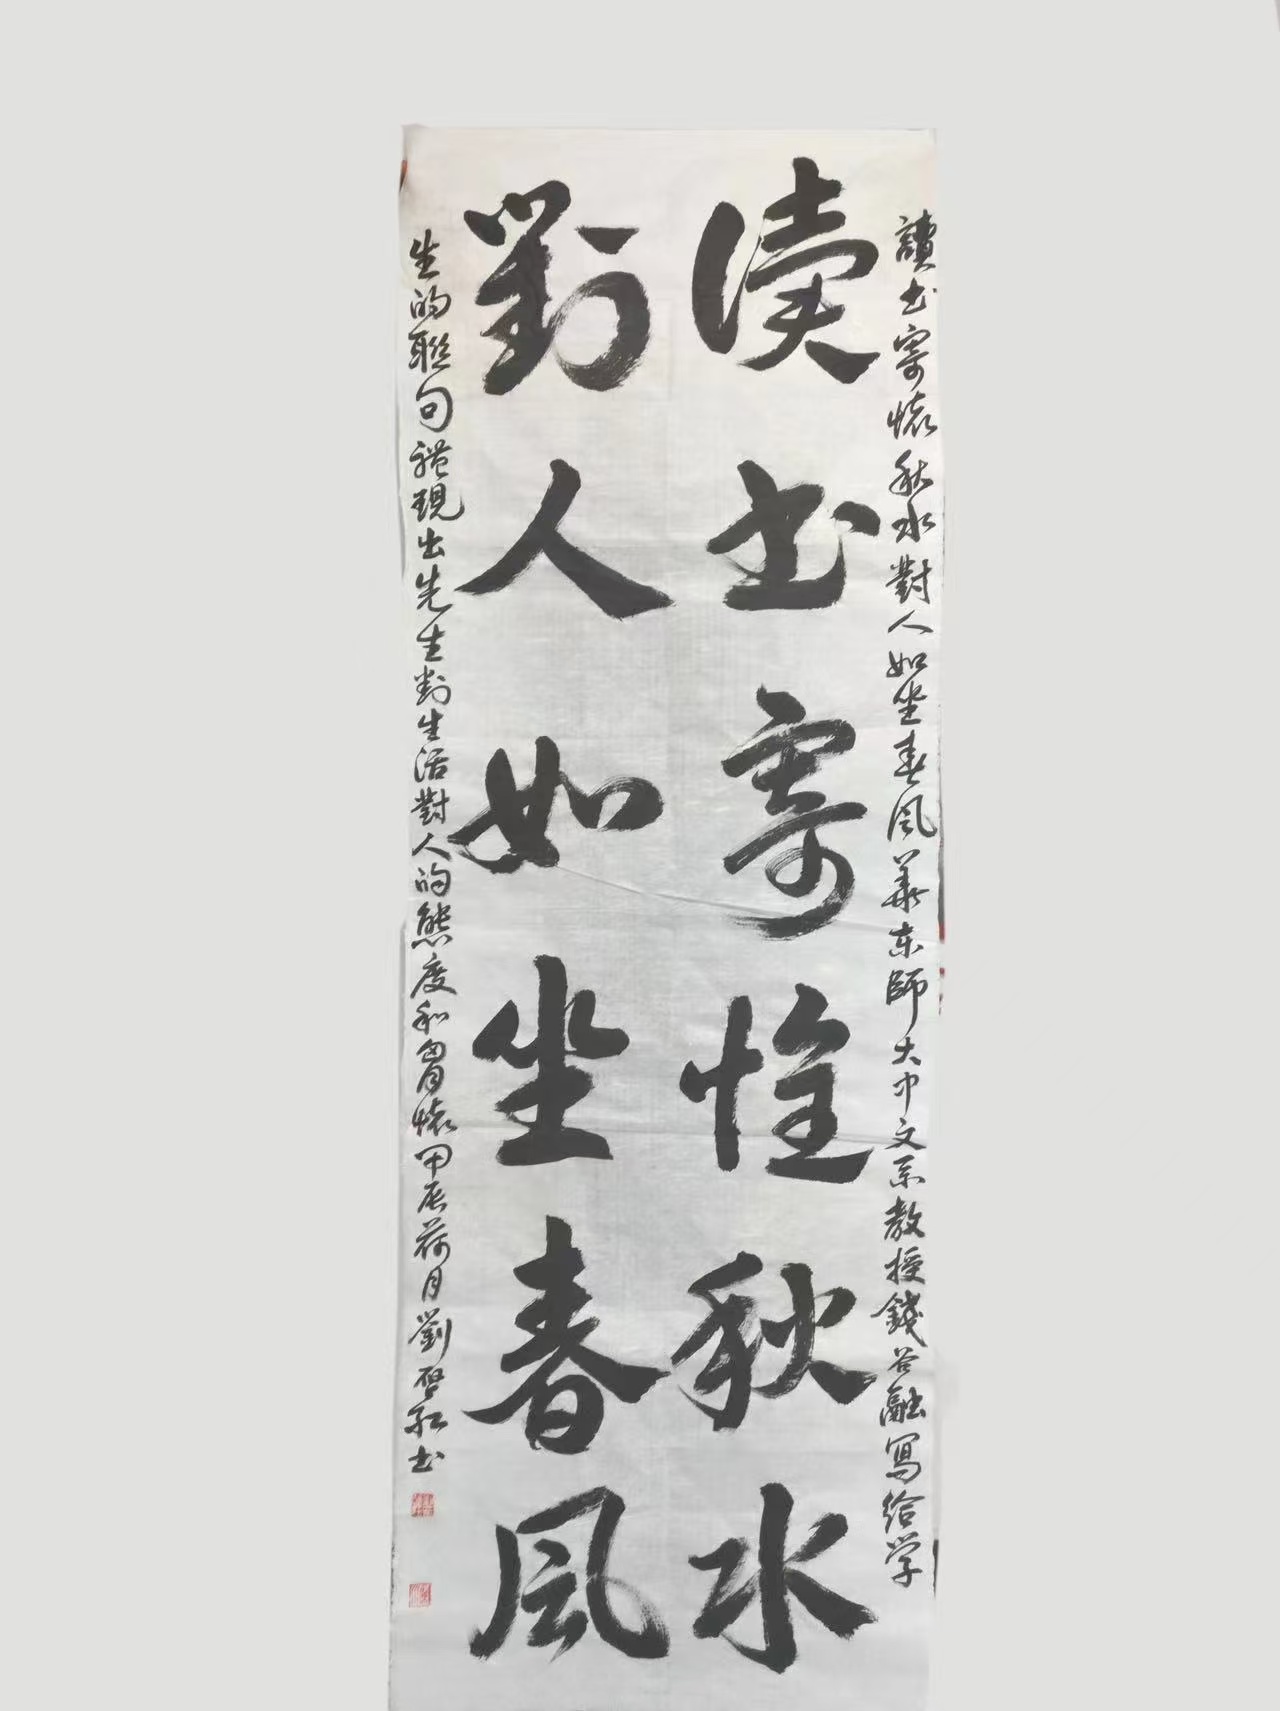 讀书寄懷秋水對人如坐春风華东師大中文系教授錢谷融寫给学
读书寄惟秋水
對人如坐春風
生的聯句體現出先生對生活對人的態度和胸懷甲辰荷月劉红书